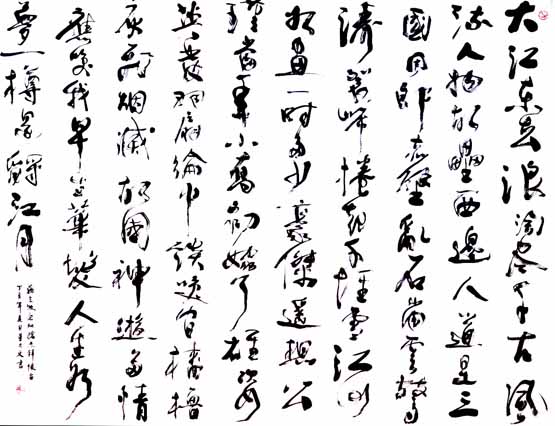 大江東去浪淘盡千古風
流人物故壘西邊人道是三
國周郎赤壁亂石崩雲驚
濤裂岸捲起千堆雪江山
如畫一時多少豪傑遙想公
瑾當年小喬初嫁了雄姿
英發羽扇綸巾談笑間檣櫓
灰飛烟滅故國神遊多情
應笑我早生華髮人生如
夢一樽還酹江月